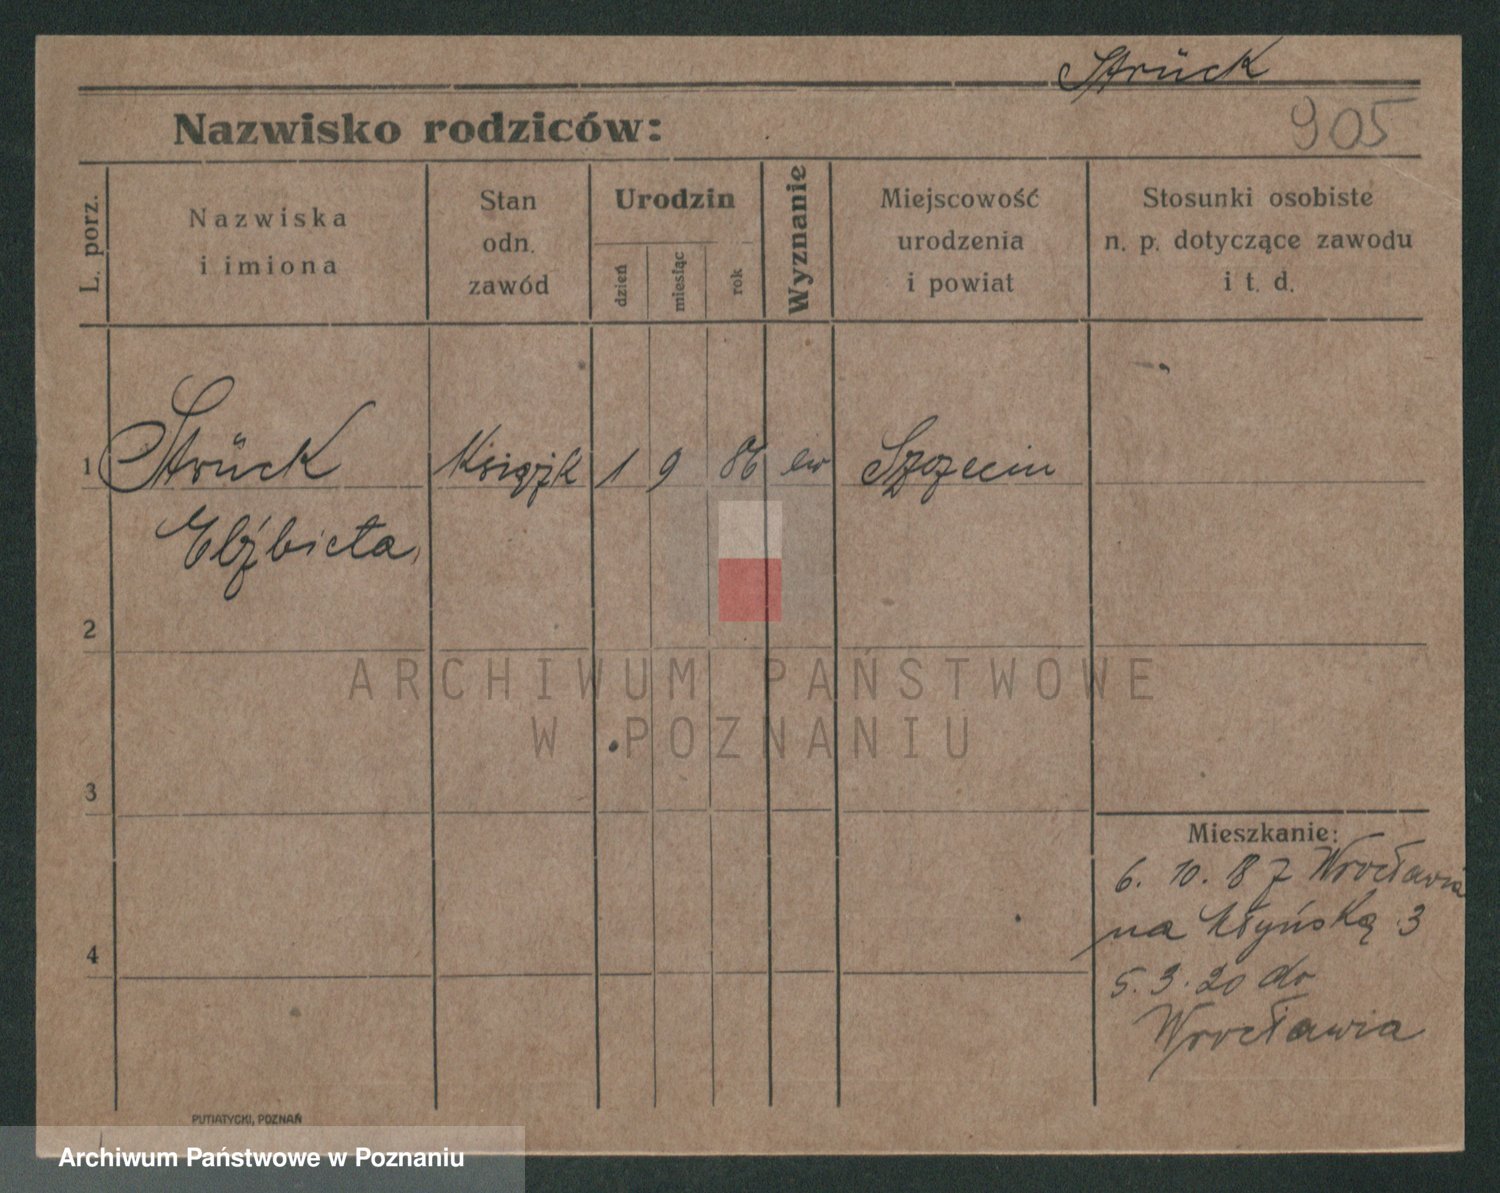 Strück
905
Nazwisko rodziców:
L. porz.
Nazwiska
i imiona
Stan
odn.
zawód
Urodzin
dzień
miesiąc
rok
Wyznanie
Miejscowość
urodzenia
i powiat
Stosunki osobiste
n. p. dotyczące zawodu
i t. d.
1 Strück Książk 1 9 86 ew Szczecin
Elżbieta
2
ARCHIWUM PAŃSTWOWE
W POZNANIU
3
Mieszkanie:
6. 10. 18 z Wrocławia
na Młyńską 3
4
5. 3. 20 do
Wrocławia
PUTIATYCKI, POZNAŃ
Archiwum Państwowe w Poznaniu